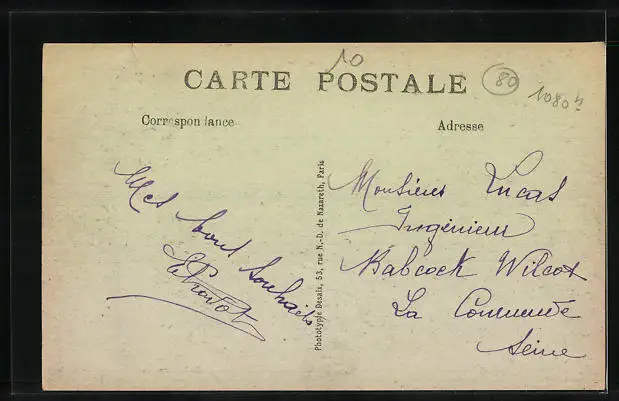 10
CARTE POSTALE
80
1080
Correspondance
Adresse
Mes bons Souhaits
Monsieur Lucas
Ingénieur
Babcock Wilcox
La Courneuve
Seine
Phototypie Desaix, 53, rue N.-D. de Nazareth, Paris